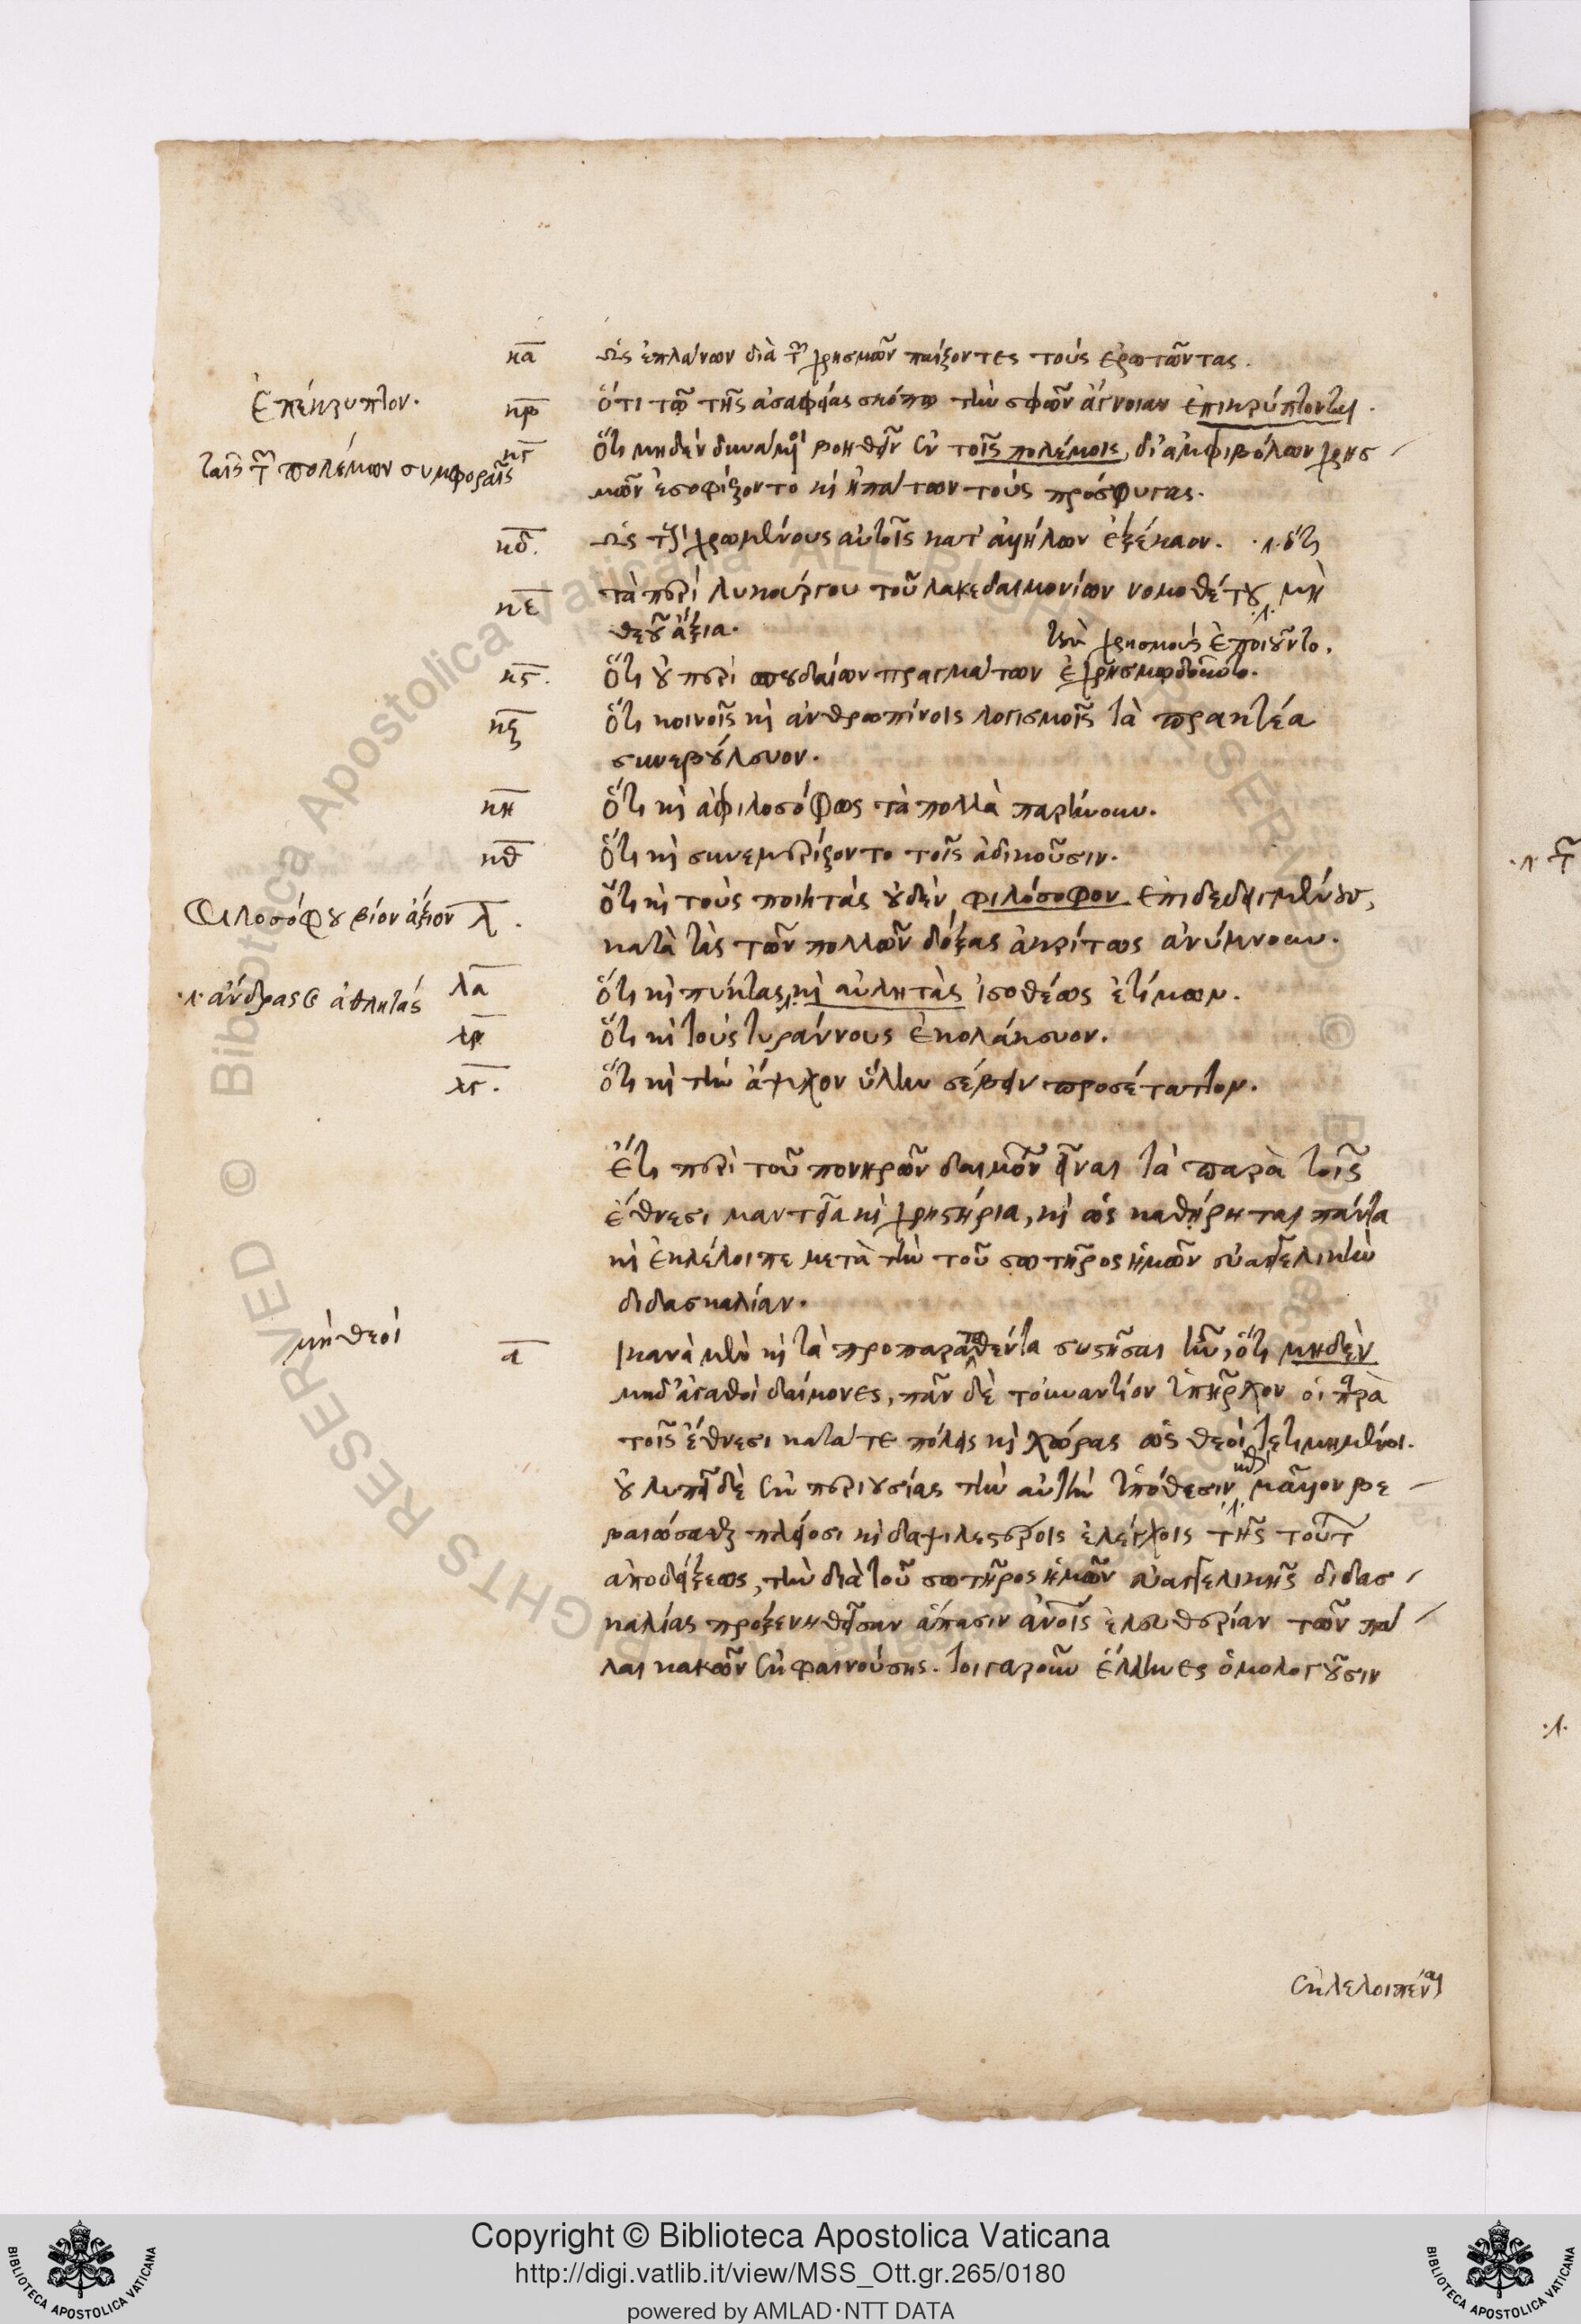 κα ὡς ἐπλάνων διὰ τῶν χρησμῶν παίζοντες τοὺς ἐρωτῶντας.
Ἐπέκρυπτον.
κβ ὅτι τῷ τῆς ἀσαφείας σκόπῳ τὴν σφῶν ἄγνοιαν ἐπικρύπτονται.
ταῖς τῶν πολέμων συμφοραῖς
κγ ὅτι μηδὲν δυνάμενοι βοηθεῖν ἐν τοῖς πολέμοις, δι' ἀμφιβόλων χρησ
μῶν ἐσοφίζοντο καὶ ἠπάτων τοὺς πρόσφυγας.
κδ. ὡς τοὺς χρωμένους αὐτοῖς κατ' ἀλλήλων ἐξέκαον. ·λ· ὅτι
κε τὰ περὶ λυκούργου τοῦ λακεδαιμονίων νομοθέτου μὴ
θεοῦ ἄξια.
·λ· τοὺς χρησμοὺς ἐποιοῦντο.
κς. ὅτι οὐ περὶ σπουδαίων πραγμάτων ἐχρησμῳδοῦντο.
κζ ὅτι κοινοῖς καὶ ἀνθρωπίνοις λογισμοῖς τὰ πρακτέα
συνεβούλευον.
κη ὅτι καὶ ἀφιλοσόφως τὰ πολλὰ παρῄνουν.
κθ ὅτι καὶ συνεμερίζοντο τοῖς ἀδικοῦσιν.
Φιλοσόφου βίον ἄξιον
λ. ὅτι καὶ τοὺς ποιητὰς οὐδὲν φιλόσοφον ἐπιδεδειγμένους,
κατὰ τὰς τῶν πολλῶν δόξας ἀκρίτως ἀνύμνουν.
·λ· ἄνδρας ἀθλητάς
λα ὅτι καὶ πύκτας, καὶ αὐλητὰς ἰσοθέως ἐτίμων.
λβ ὅτι καὶ τοὺς τυράννους ἐκολάκευον.
λγ. ὅτι καὶ τὴν ἄψυχον ὕλην σέβειν προσέταττον.
Ἔτι περὶ τοῦ πονηρῶν δαιμόνων εἶναι τὰ παρὰ τοῖς
ἔθνεσι μαντεῖα καὶ χρηστήρια, καὶ ὡς καθῄρηται πάντα
καὶ ἐκλέλοιπε μετὰ τὴν τοῦ σωτῆρος ἡμῶν εὐαγγελικὴν
διδασκαλίαν.
μὴ θεοὶ
α Ἱκανὰ μὲν καὶ τὰ προπαρατεθέντα συστῆσαι ἦν, ὅτι μηδὲν
μηδ' ἀγαθοὶ δαίμονες, πᾶν δὲ τοὐναντίον ὑπῆρχον οἱ παρὰ
τοῖς ἔθνεσι κατά τε πόλεις καὶ χώρας ὡς θεοὶ τετιμημένοι.
οὐ λυπεῖ δὲ ἐκ περιουσίας τὴν αὐτὴν ὑπόθεσιν μᾶλλον βε
βαιώσασθαι πλείοσι καὶ δαψιλεστέροις ἐλέγχοις ·λ· τῆς τούτων
ἀποδείξεως, τὴν διὰ τοῦ σωτῆρος ἡμῶν εὐαγγελικῆς διδασ
καλίας προξενηθεῖσαν ἅπασιν ἀνοῖς ἐλευθερίαν τῶν πά
λαι κακῶν ἐκφαινούσης. τοιγαροῦν ἕλληνες ὁμολογοῦσιν
ἐκλελοιπέναι